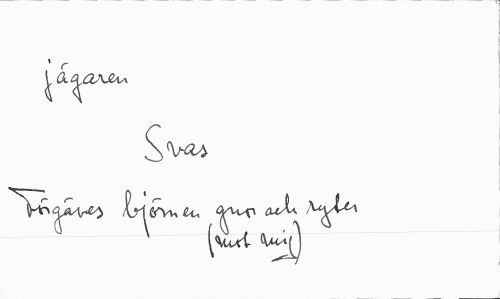 jägaren
Svas
Förgäves björnen gnor och ryter
(mot mig)